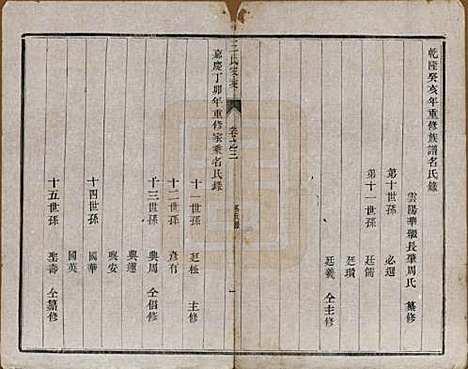 乾隆癸亥年重修族譜名氏錄
雲陽華職長肇周氏 纂修
第十世孫 必選
第十一世孫 廷儒
廷瓚
廷羲 仝主修
王氏家乘
卷之二
名氏錄
一
嘉慶丁卯年重修家乘名氏錄
十一世孫 廷極 主修
十二世孫 彥有
十三世孫 興周 仝倡修
興蓮
興安
十四世孫 國華
國英
十五世孫 聖壽 仝纂修